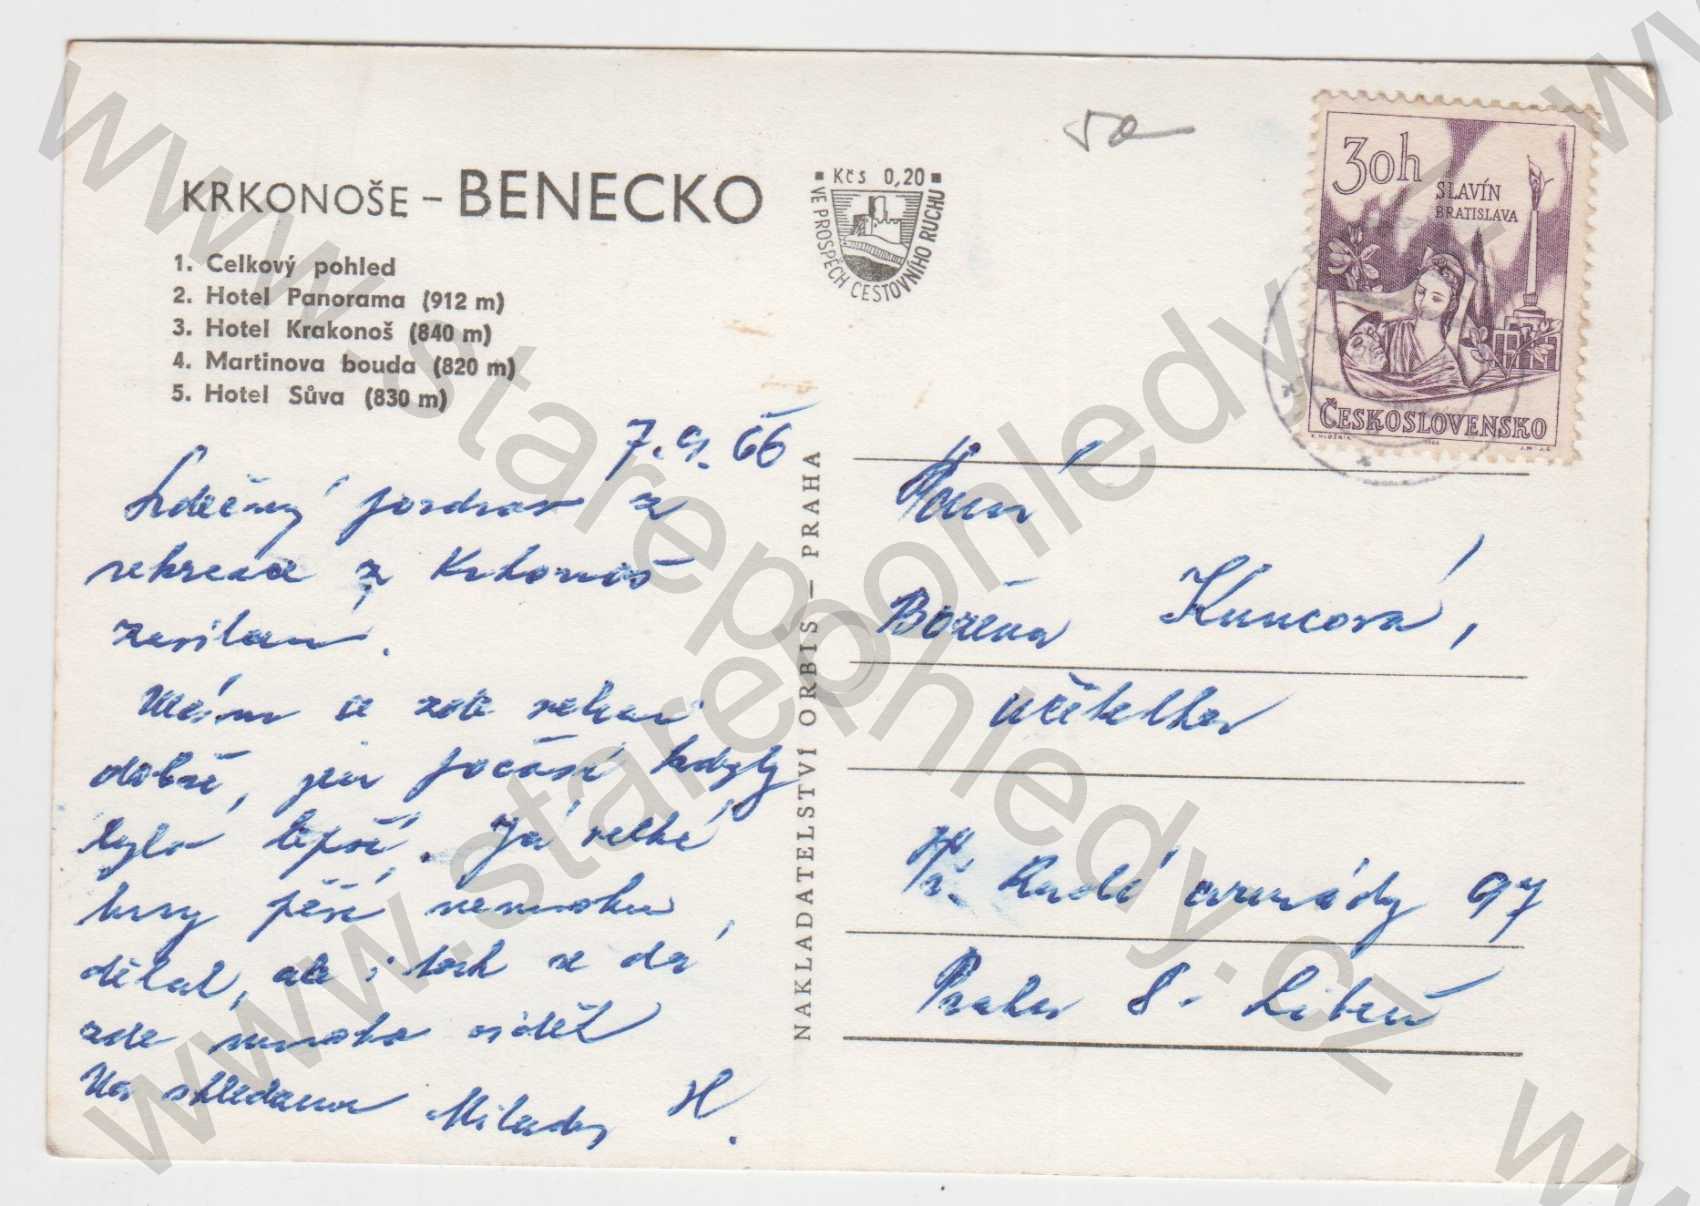 KRKONOŠE – BENECKO
1. Celkový pohled
2. Hotel Panorama (912 m)
3. Hotel Krakonoš (840 m)
4. Martinova bouda (820 m)
5. Hotel Sůva (830 m)
Kčs 0,20
VE PROSPĚCH CESTOVNÍHO RUCHU
50
30h
SLAVÍN
BRATISLAVA
ČESKOSLOVENSKO
7.9.66
Srdečný pozdrav z
rekreace z Krkonoš
zasílám.
Mám se zde velmi
dobře, jen počasí kdyby
bylo lepší. Já velké
túry pěší nemohu
dělat, ale i tak se dá
zde mnoho vidět
Na shledanou Milada H.
NAKLADATELSTVÍ ORBIS – PRAHA
Paní
Božena Kuncová,
učitelka
Tř. Rudé armády 97
Praha 8 - Libeň
www.starepohledy.cz
www.starepohledy.cz